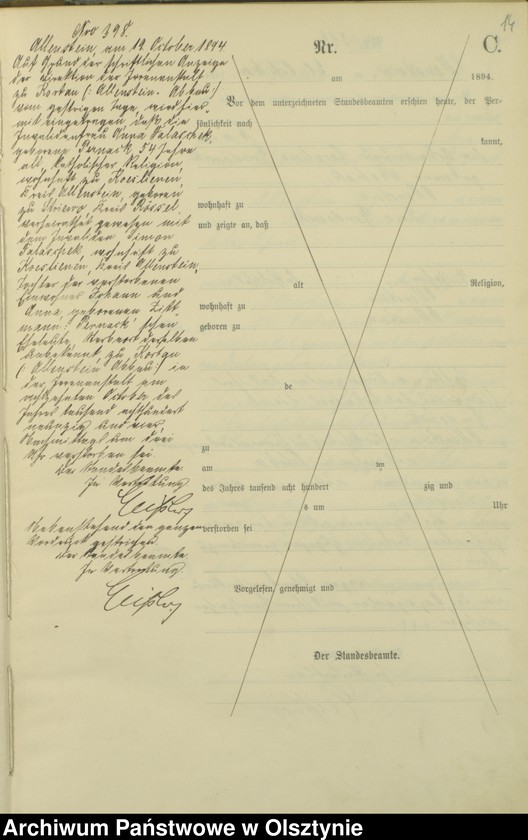 14
Nro 398.
Allenstein, am 19. October 1894
Auf Grund der schriftlichen Anzeige
der Direktion der Irrenanstalt
zu Kortau (: Allenstein. Abbau :)
vom gestrigen Tage, wird hier-
mit eingetragen, daß die
Invalidenfrau Anna
geborene 54 Jahre
alt, katholischer Religion,
wohnhaft zu
Kreis Allenstein, geboren
zu Kreis Rössel,
verheirathet gewesen mit
dem Invaliden Simon
wohnhaft zu
Kreis Allenstein,
Tochter der verstorbenen
Einwohner Johann und
Anna, geborenen
schen
Eheleute,
unbekannt, zu Kortau
(: Allenstein Abbau :) in
der Irrenanstalt am
achtzehnten October des
Jahres tausend achthundert
neunzig und vier,
Nachmittags um drei
Uhr verstorben sei.
Der Standesbeamte
In Vertretung
Nebenstehend den ganzen
Vordruck gestrichen
Der Standesbeamte
In Vertretung.
Nr. C.
am 1894.
Vor dem unterzeichneten Standesbeamten erschien heute, der Per-
sönlichkeit nach
kannt,
wohnhaft zu
und zeigte an, daß
alt Religion,
wohnhaft zu
geboren zu
de
zu
am ten
des Jahres tausend acht hundert zig und
s um Uhr
verstorben sei
Vorgelesen, genehmigt und
Der Standesbeamte.
Archiwum Państwowe w Olsztynie